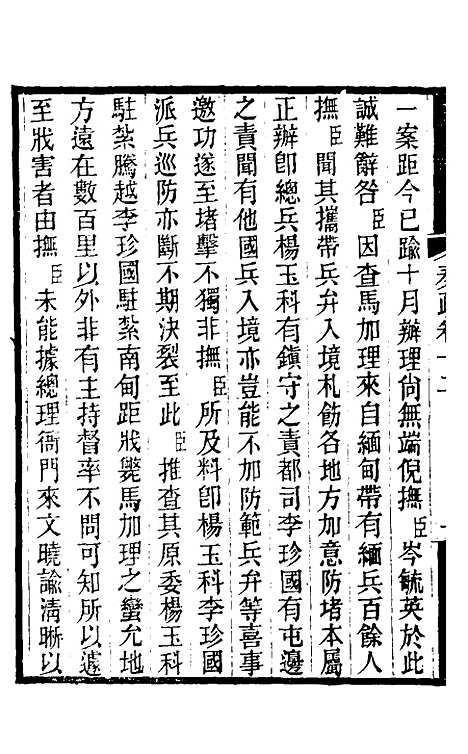 一案距今已踰十月辦理尚無端倪撫臣岑毓英於此
誠難辭咎臣因查馬加理來自緬甸帶有緬兵百餘人
撫臣聞其攜帶兵弁入境札飭各地方加意防堵本屬
正辦卽總兵楊玉科有鎮守之責都司李珍國有屯邊
之責聞有他國兵入境亦豈能不加防範兵弁等喜事
邀功遂至堵擊不獨非撫臣所及料卽楊玉科李珍國
派兵巡防亦斷不期決裂至此臣推查其原委楊玉科
駐紮騰越李珍國駐紮南甸距戕斃馬加理之蠻允地
方遠在數百里以外非有主持督率不問可知所以遽
至戕害者由撫臣未能據總理衙門來文曉諭淸晰以